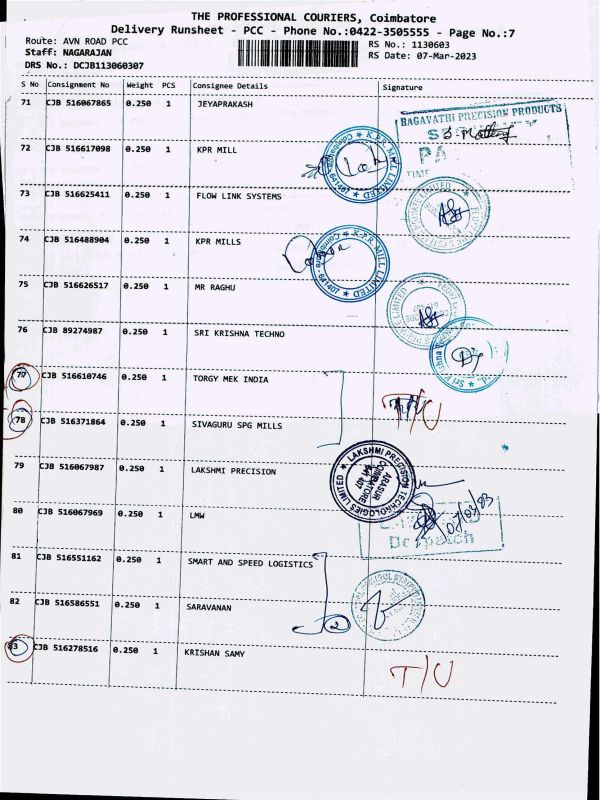 THE PROFESSIONAL COURIERS, Coimbatore
Delivery Runsheet - PCC - Phone No.:0422-3505555 - Page No.:7
Route: AVN ROAD PCC
RS No.: 1130603
Staff: NAGARAJAN
RS Date: 07-Mar-2023
DRS No.: DCJB113060307
S No Consignment No Weight PCS Consignee Details Signature
71 CJB 516067865 0.250 1 JEYAPRAKASH
RAGAVATHI PRECISION PRODUCTS
TIME
72 CJB 516617098 0.250 1 KPR MILL
K.P.R. MILL LIMITED ★ Coimbatore - 641407 ★
73 CJB 516625411 0.250 1 FLOW LINK SYSTEMS
74 CJB 516488904 0.250 1 KPR MILLS
K.P.R. MILL LIMITED ★ Coimbatore - 641407 ★
75 CJB 516626517 0.250 1 MR RAGHU
76 CJB 89274987 0.250 1 SRI KRISHNA TECHNO
77 CJB 516610746 0.250 1 TORGY MEK INDIA
T/U
78 CJB 516371864 0.250 1 SIVAGURU SPG MILLS
79 CJB 516067987 0.250 1 LAKSHMI PRECISION
LAKSHMI PRECISION TECHNOLOGIES LIMITED ★
ARASUR
COIMBATORE
641 407
80 CJB 516067969 0.250 1 LMW
07/03/23
Despatch
81 CJB 516551162 0.250 1 SMART AND SPEED LOGISTICS
82 CJB 516586551 0.250 1 SARAVANAN
2
83 CJB 516278516 0.250 1 KRISHAN SAMY
T/U